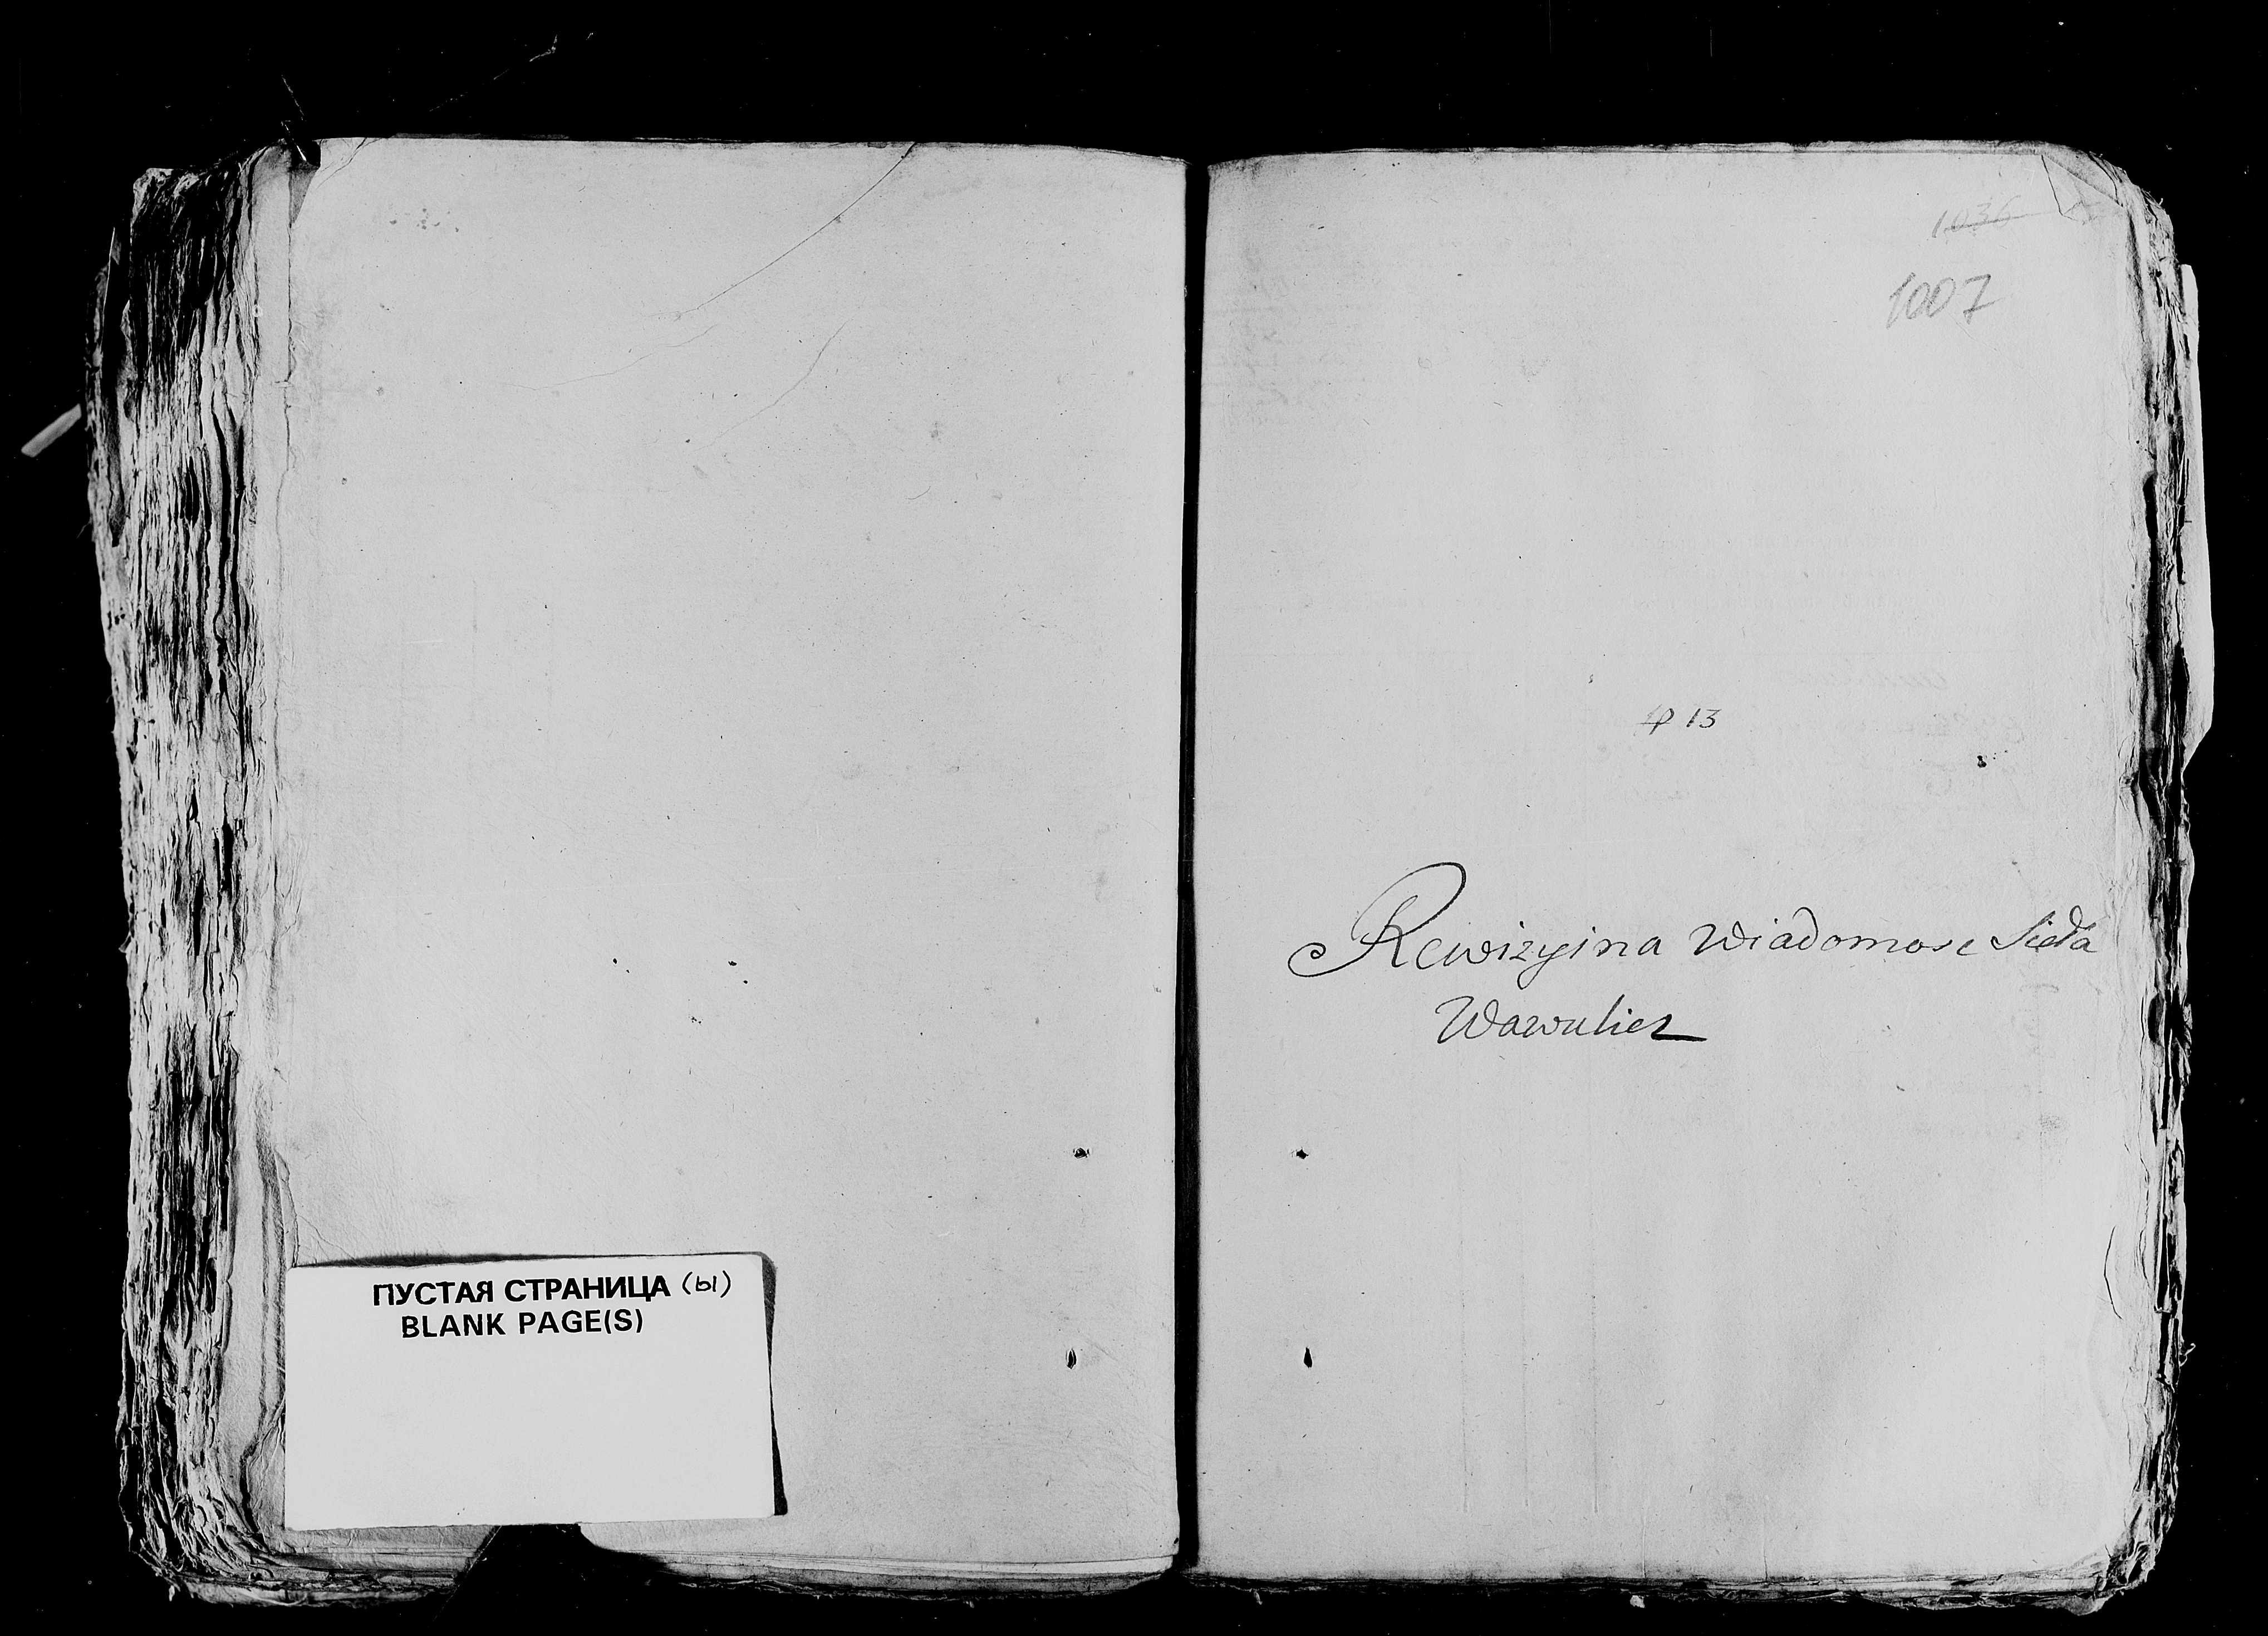 ПУСТАЯ СТРАНИЦА (ы)
BLANK PAGE(S)
1036
1007
13
Rewizyina Wiadomosc Sieła
Wawulicz